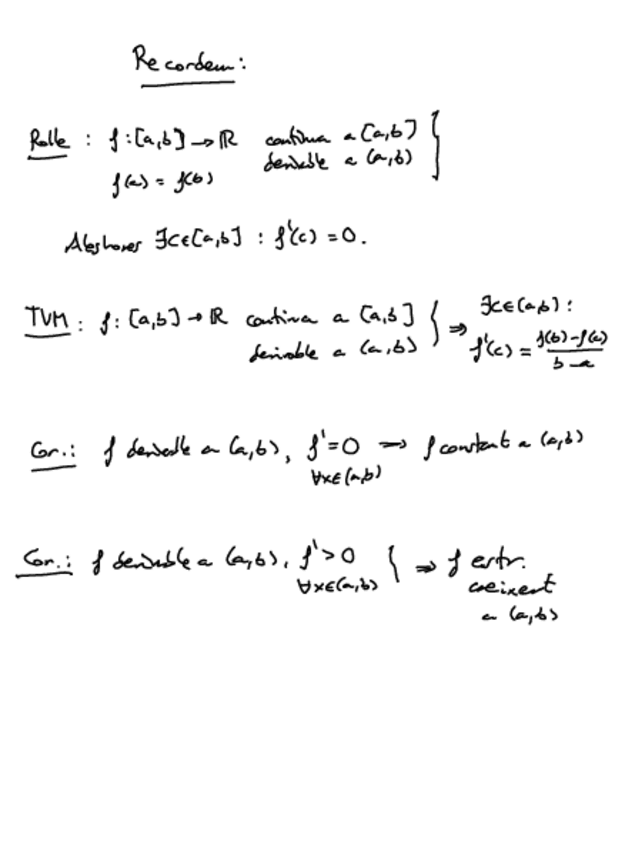 Recordem:
Rolle : f:[a,b] → ℝ contínua a [a,b]
f(a) = f(b) derivable a (a,b) }
Aleshores ∃c∈[a,b] : f'(c) = 0.
TVM : f: [a,b] → ℝ contínua a [a,b] } ⇒ ∃c∈(a,b) :
derivable a (a,b) f'(c) = f(b)-f(a) / b-a
Cor.: f derivable a (a,b), f'=0 ⇒ f constant a (a,b)
∀x∈(a,b)
Cor.: f derivable a (a,b), f'>0 } ⇒ f estr.
∀x∈(a,b) creixent
a (a,b)